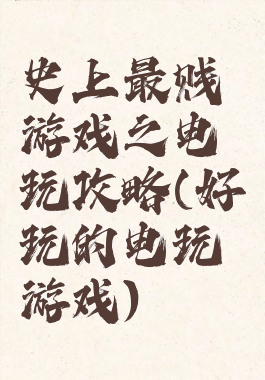 史上最贱
游戏之电
玩攻略(好
玩的电玩
游戏)